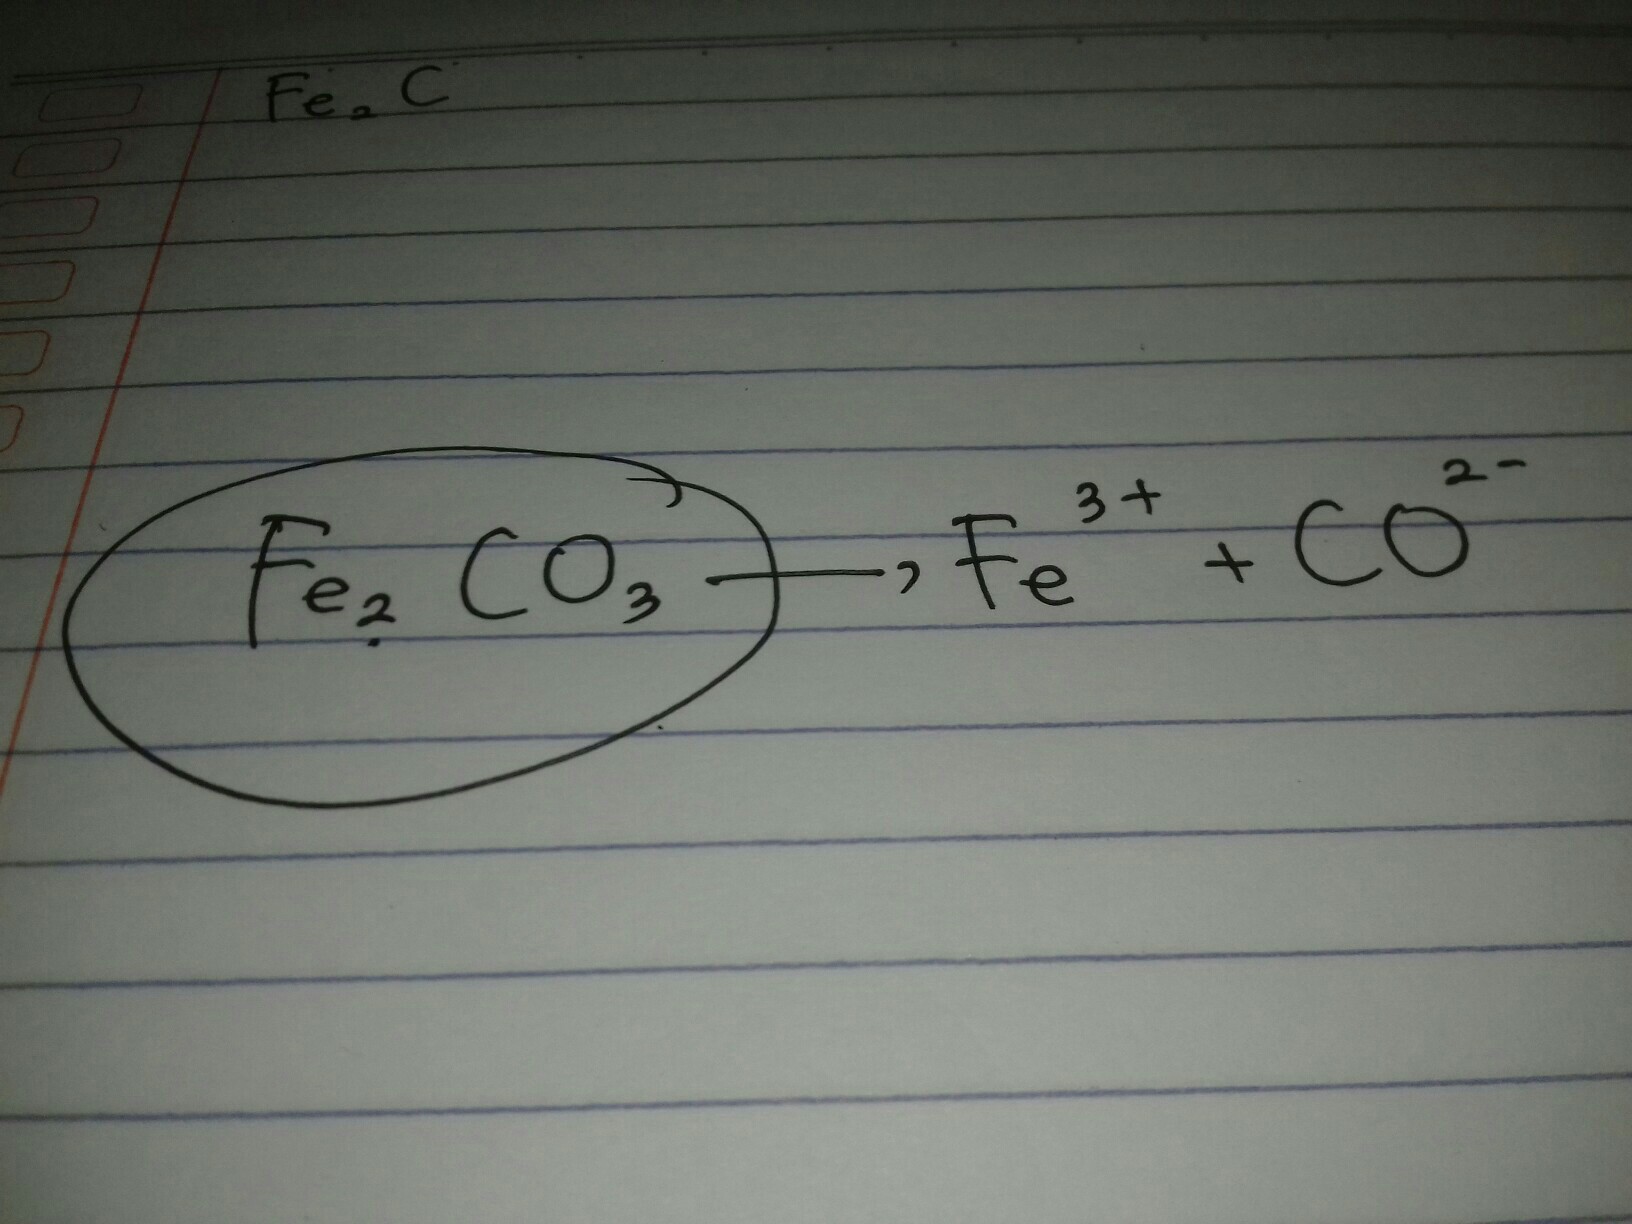 Fe₂ C
Fe₂ CO₃ → Fe³⁺ + CO²⁻